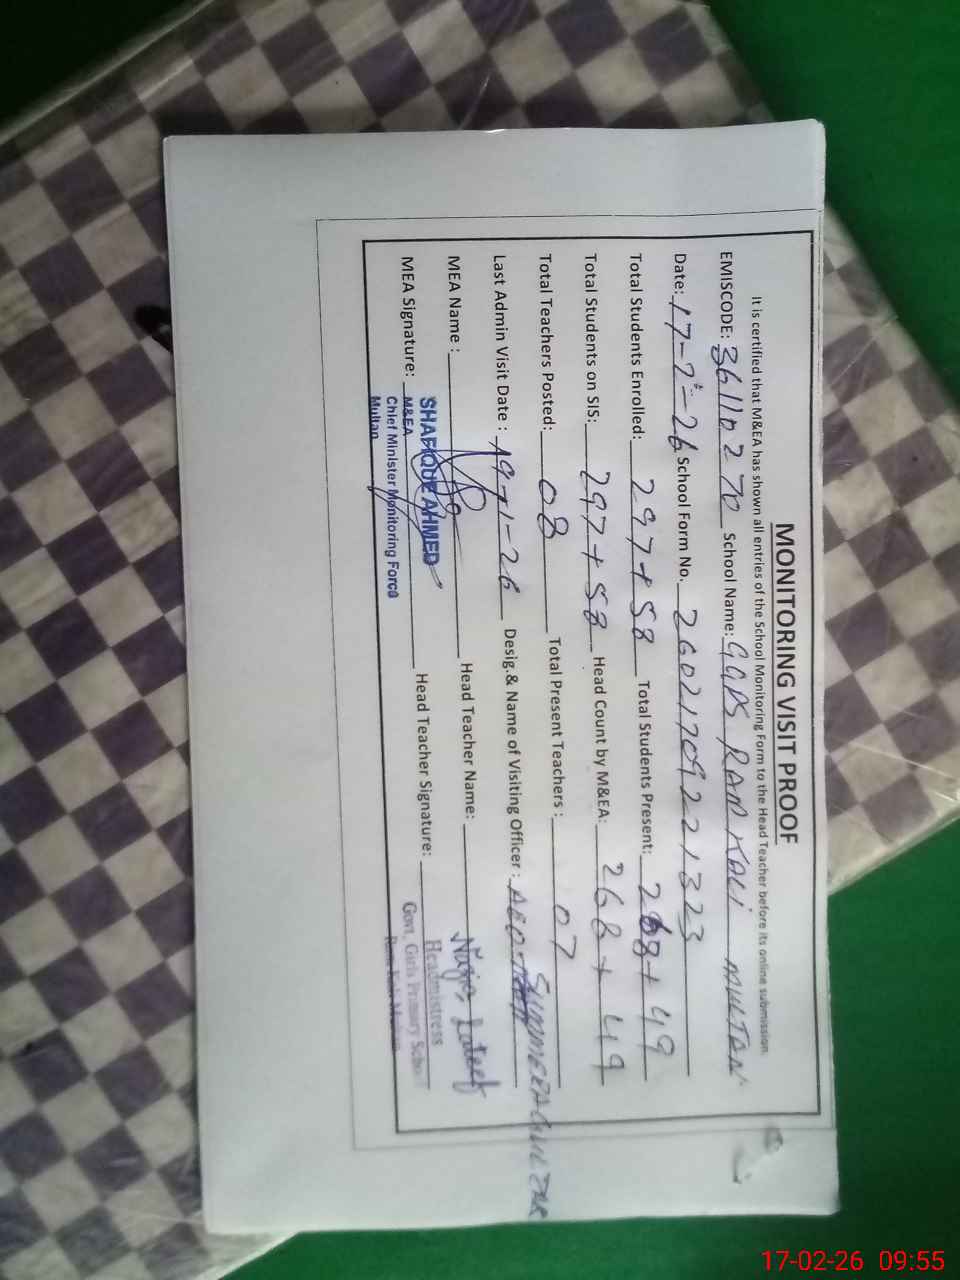 MONITORING VISIT PROOF
It is certified that M&EA has shown all entries of the School Monitoring Form to the Head Teacher before its online submission.
EMISCODE: 36110270 School Name: GGPS RAM KALI MULTAN
Date: 17-2-26 School Form No. 26021709221323
Total Students Enrolled: 297+58 Total Students Present: 268+49
Total Students on SIS: 297+58 Head Count by M&EA: 268+49
Total Teachers Posted: 08 Total Present Teachers : 07
Last Admin Visit Date : 19-1-26 Desig.& Name of Visiting Officer : AEO
MEA Name : Head Teacher Name: Lateef
MEA Signature: Head Teacher Signature:
SHAFIQUE AHMED
M&EA
Chief Minister Monitoring Force
Multan
Headmistress
Govt. Girls Primary School
17-02-26 09:55